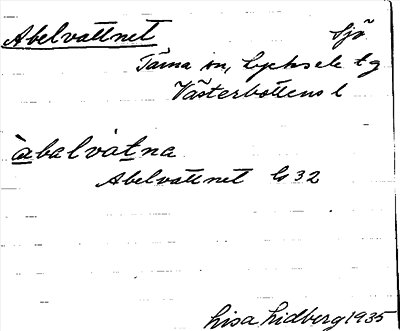 Abelvattnet Sjö
Tärna sn, Lycksele tg
Västerbottens l
àbalvàtna
Abelvattnet G 32
Lisa Lidberg 1935